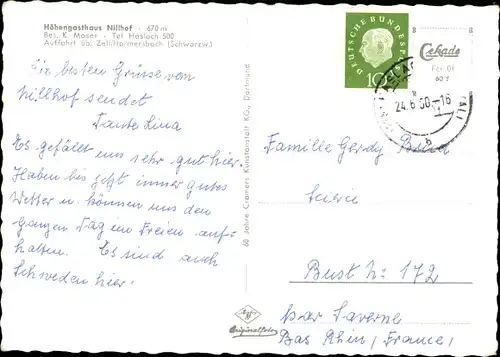 Höhengasthaus Nillhof - 670 m
Bes. K. Moser - Tel Haslach 500
Auffahrt üb. Zell/Harmersbach (Schwarzw.)
Die besten Grüsse vom
Nillhof sendet
Tante Lina
Es gefällt uns sehr gut hier.
Haben bis jetzt immer gutes
Wetter u. können uns den
ganzen Tag im Freien auf-
halten. Es sind auch
Schweden hier.
60 Jahre Cramers Kunstanstalt KG., Dortmund
Originalfoto
DEUTSCHE BUNDESPOST
10
8 8
Cekade
8 8
24.6.60.-16
b
Familie Gerdy
Scierie
Bust No 172
par Saverne
Bas Rhin, France,